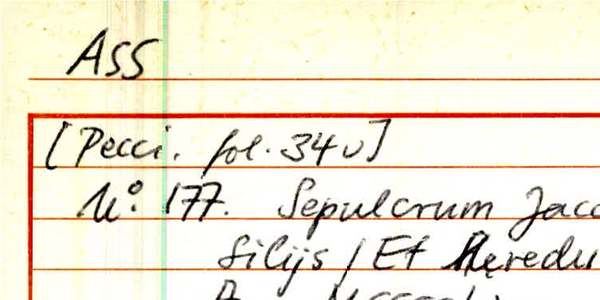 ASS
[Pecci. fol. 34v]
No. 177. Sepulcrum Jaco
filijs / Et Heredu